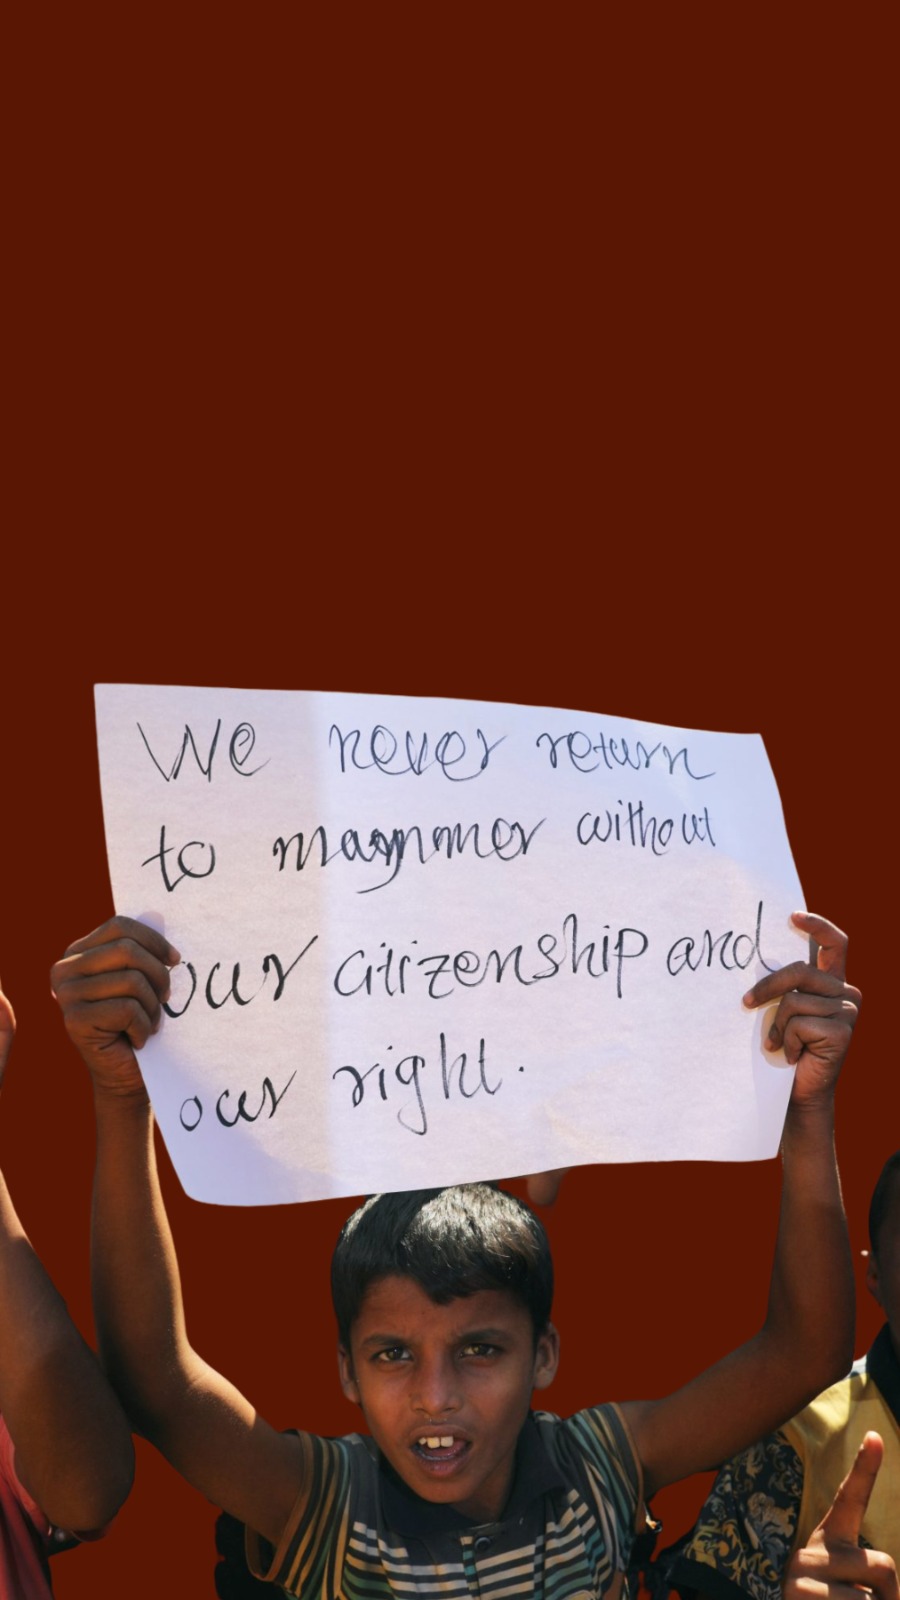 We never return
to maynmor without
our citizenship and
our right.